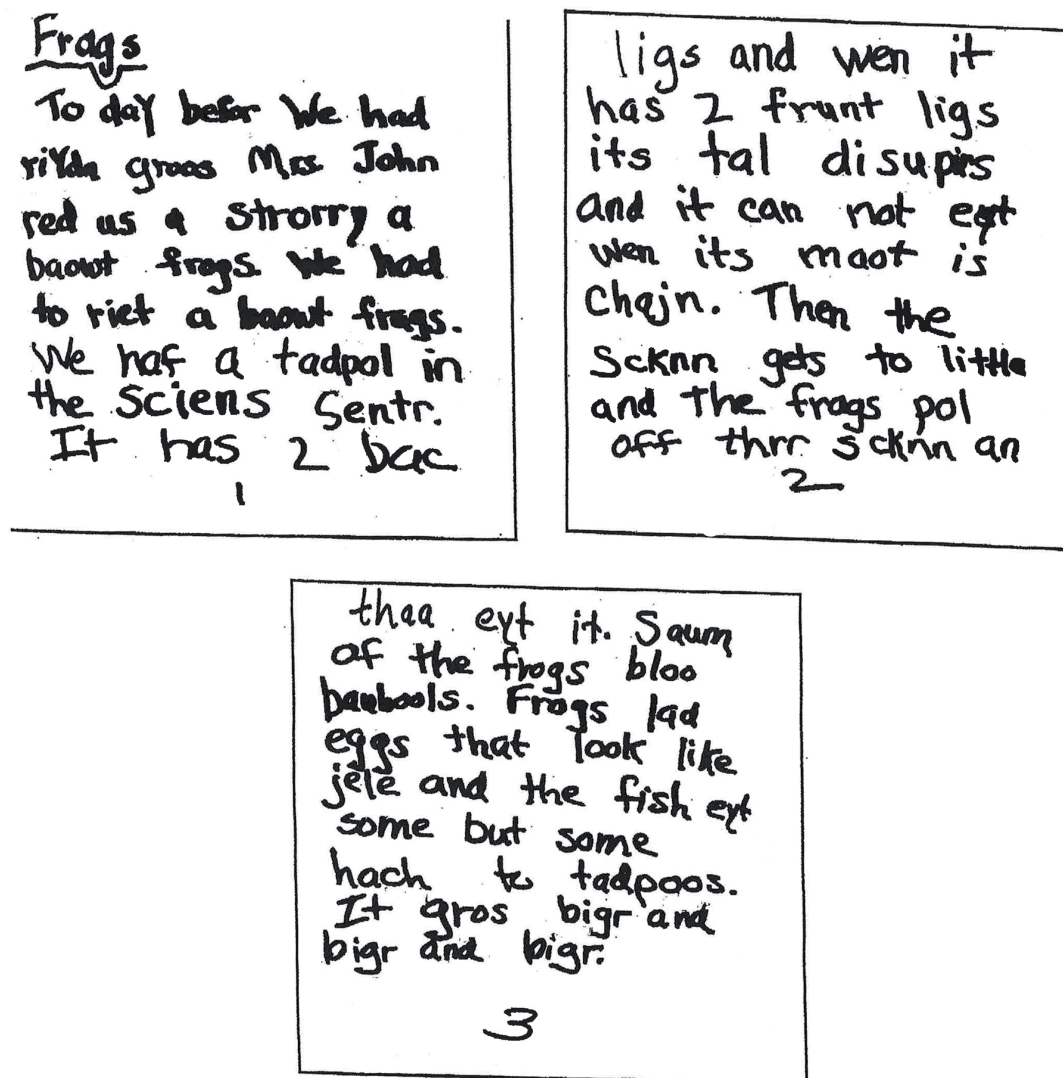 Frogs
To day befor We had
riYda groos Mrs. John
red us a strorry a
baowt frogs. We had
to riet a baowt frags.
We haf a tadpol in
the sciens Sentr.
It has 2 bac
1
ligs and wen it
has 2 frunt ligs
its tal disupirs
and it can not eyt
wen its maot is
chajn. Then the
Scknn gets to little
and The frogs pol
off thrr scknn an
2
thaa eyt it. Saum
af the frogs bloo
baubools. Frogs lad
eggs that look like
jele and the fish eyt
some but some
hach to tadpoos.
It gros bigr and
bigr and bigr.
3